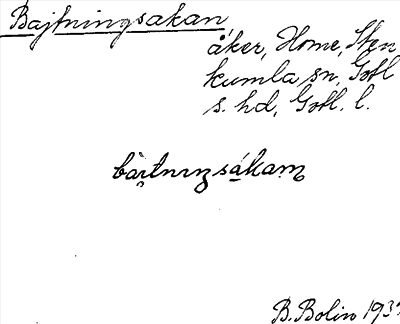 Bajtningsakan
åker, Home, Sten
kumla sn, Gotl
s. hd, Gotl. l.
bàı̯tnıŋsákam̥
B. Bolin 193